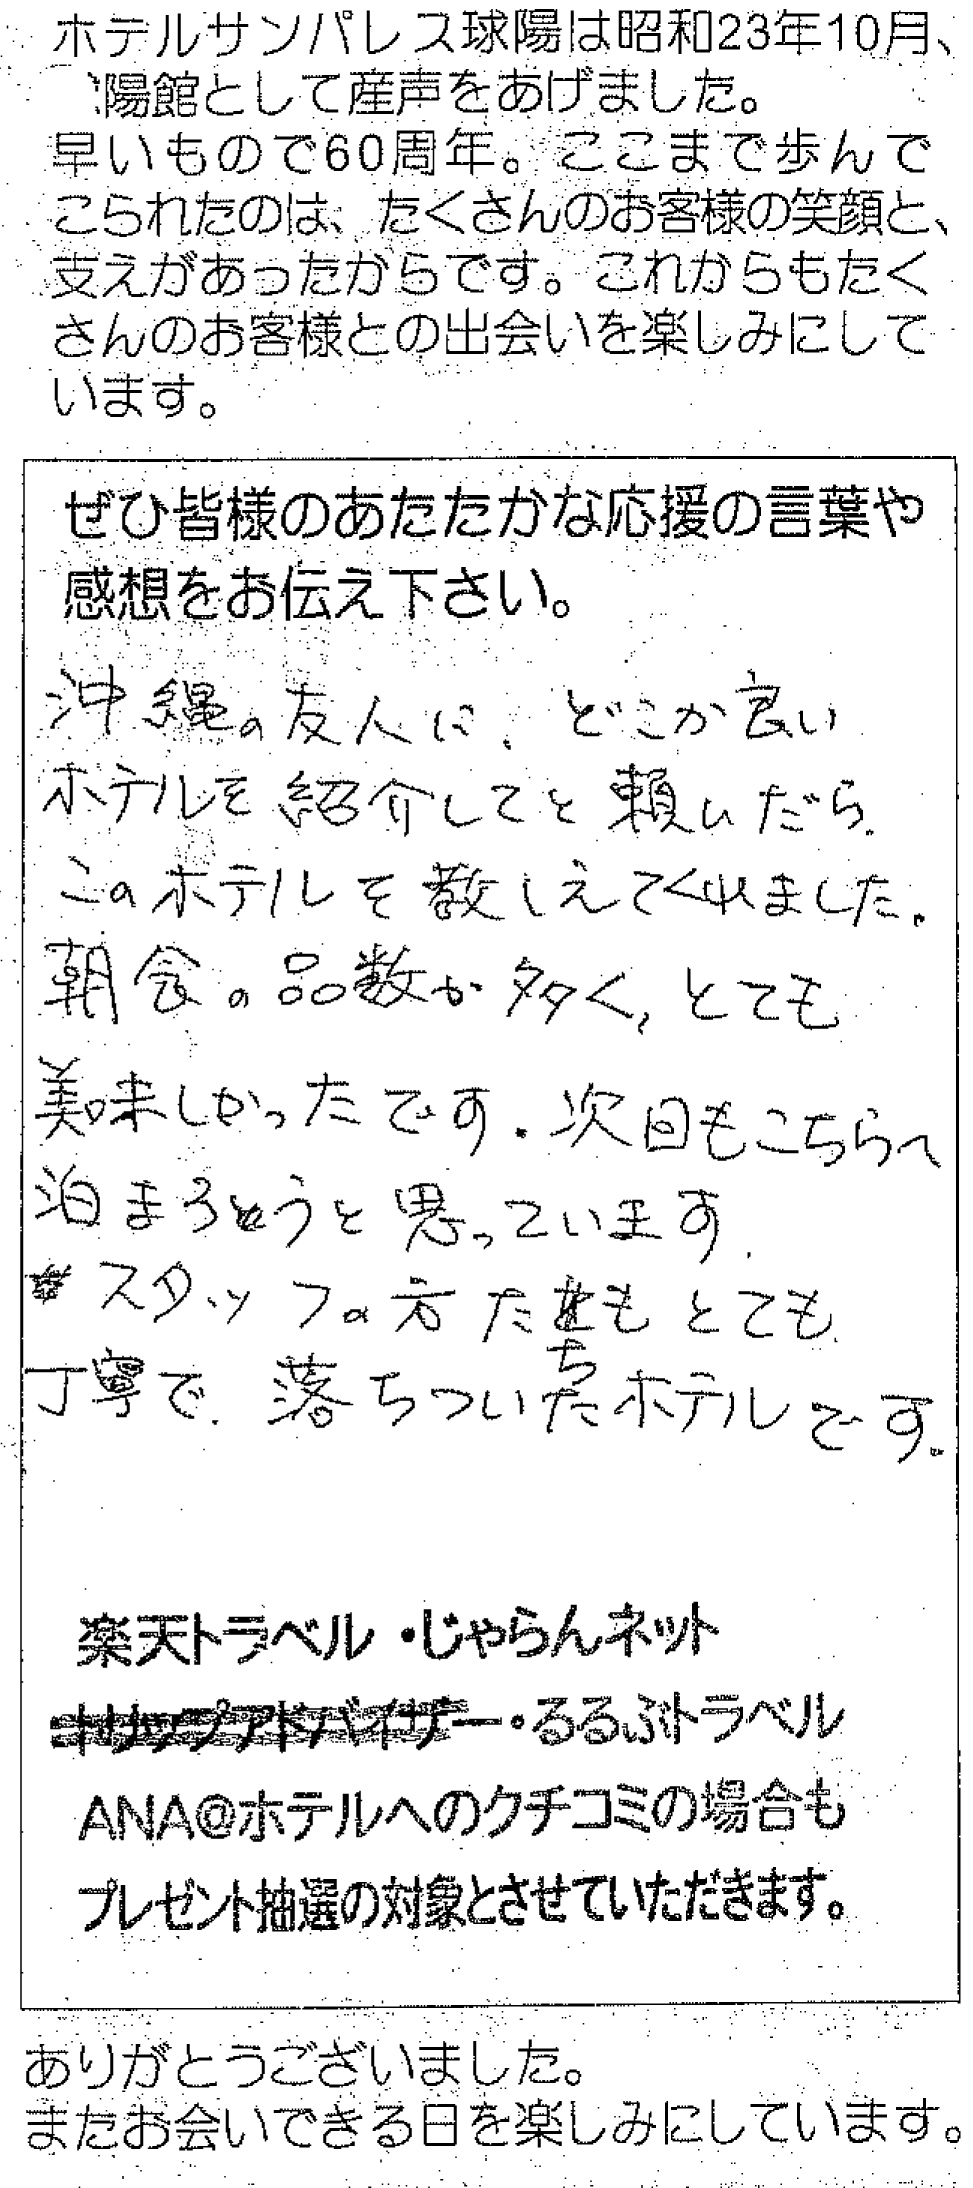 ホテルサンパレス球陽は昭和23年10月、
陽館として産声をあげました。
早いもので60周年。ここまで歩んで
こられたのは、たくさんのお客様の笑顔と、
支えがあったからです。これからもたく
さんのお客様との出会いを楽しみにして
います。
ぜひ皆様のあたたかな応援の言葉や
感想をお伝え下さい。
沖縄の友人に、どこか良い
ホテルを紹介してと頼んだら、
このホテルを教しえてくれました。
朝食の品数が多く、とても
美味しかったです。次回もこちらへ
泊まろうと思っています。
スタッフの方たちもとても
丁寧で、落ちついたホテルです。
楽天トラベル・じゃらんネット
トリップアドバイザー・るるぶトラベル
ANA@ホテルへのクチコミの場合も
プレゼント抽選の対象とさせていただきます。
ありがとうございました。
またお会いできる日を楽しみにしています。